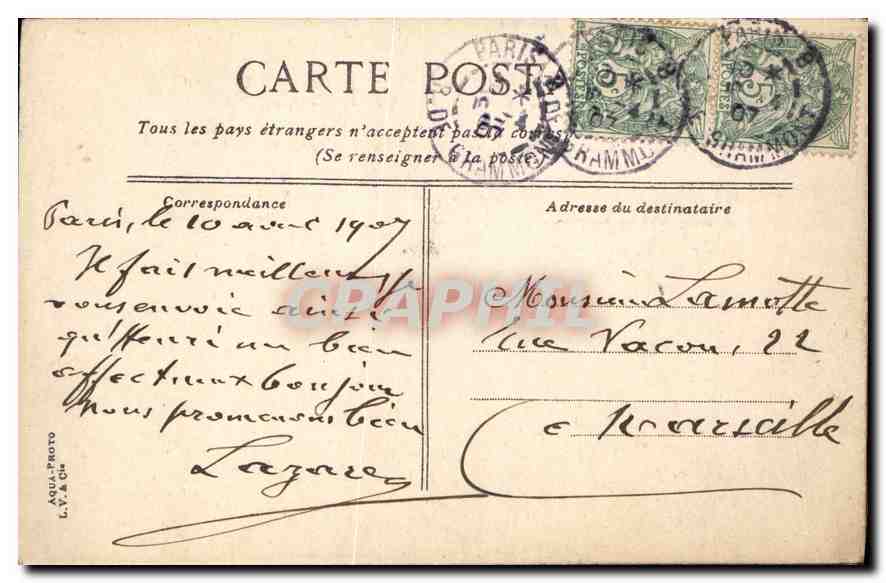 CARTE POST
Tous les pays étrangers n'acceptent pas la corres
(Se renseigner à la poste)
Correspondance
Adresse du destinataire
Paris, le 10 avril 1907
Il fait meilleur
vous envoie ainsi
qu'Henri un bien
affectueux bonjour
Nous promenons bien
Lazare
Monsieur Lamotte
rue Vacon, 22
à Marseille
AQUA-PHOTO
L.V. & Cie
PARIS
R. DE GRAMMONT
5 POSTES
CPAPHIL